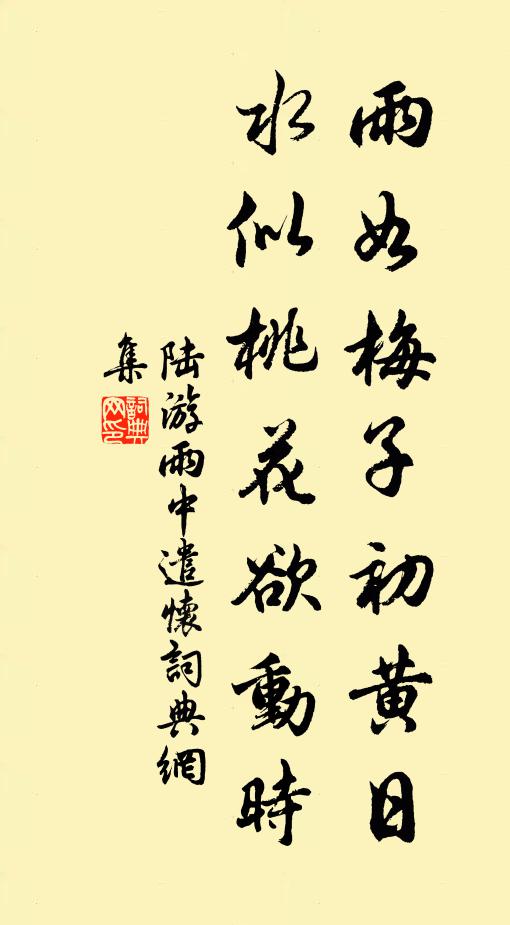 雨如梅子初黄日
水似桃花欲動時
陸游雨中遣懷詞典網
集
詞典网印